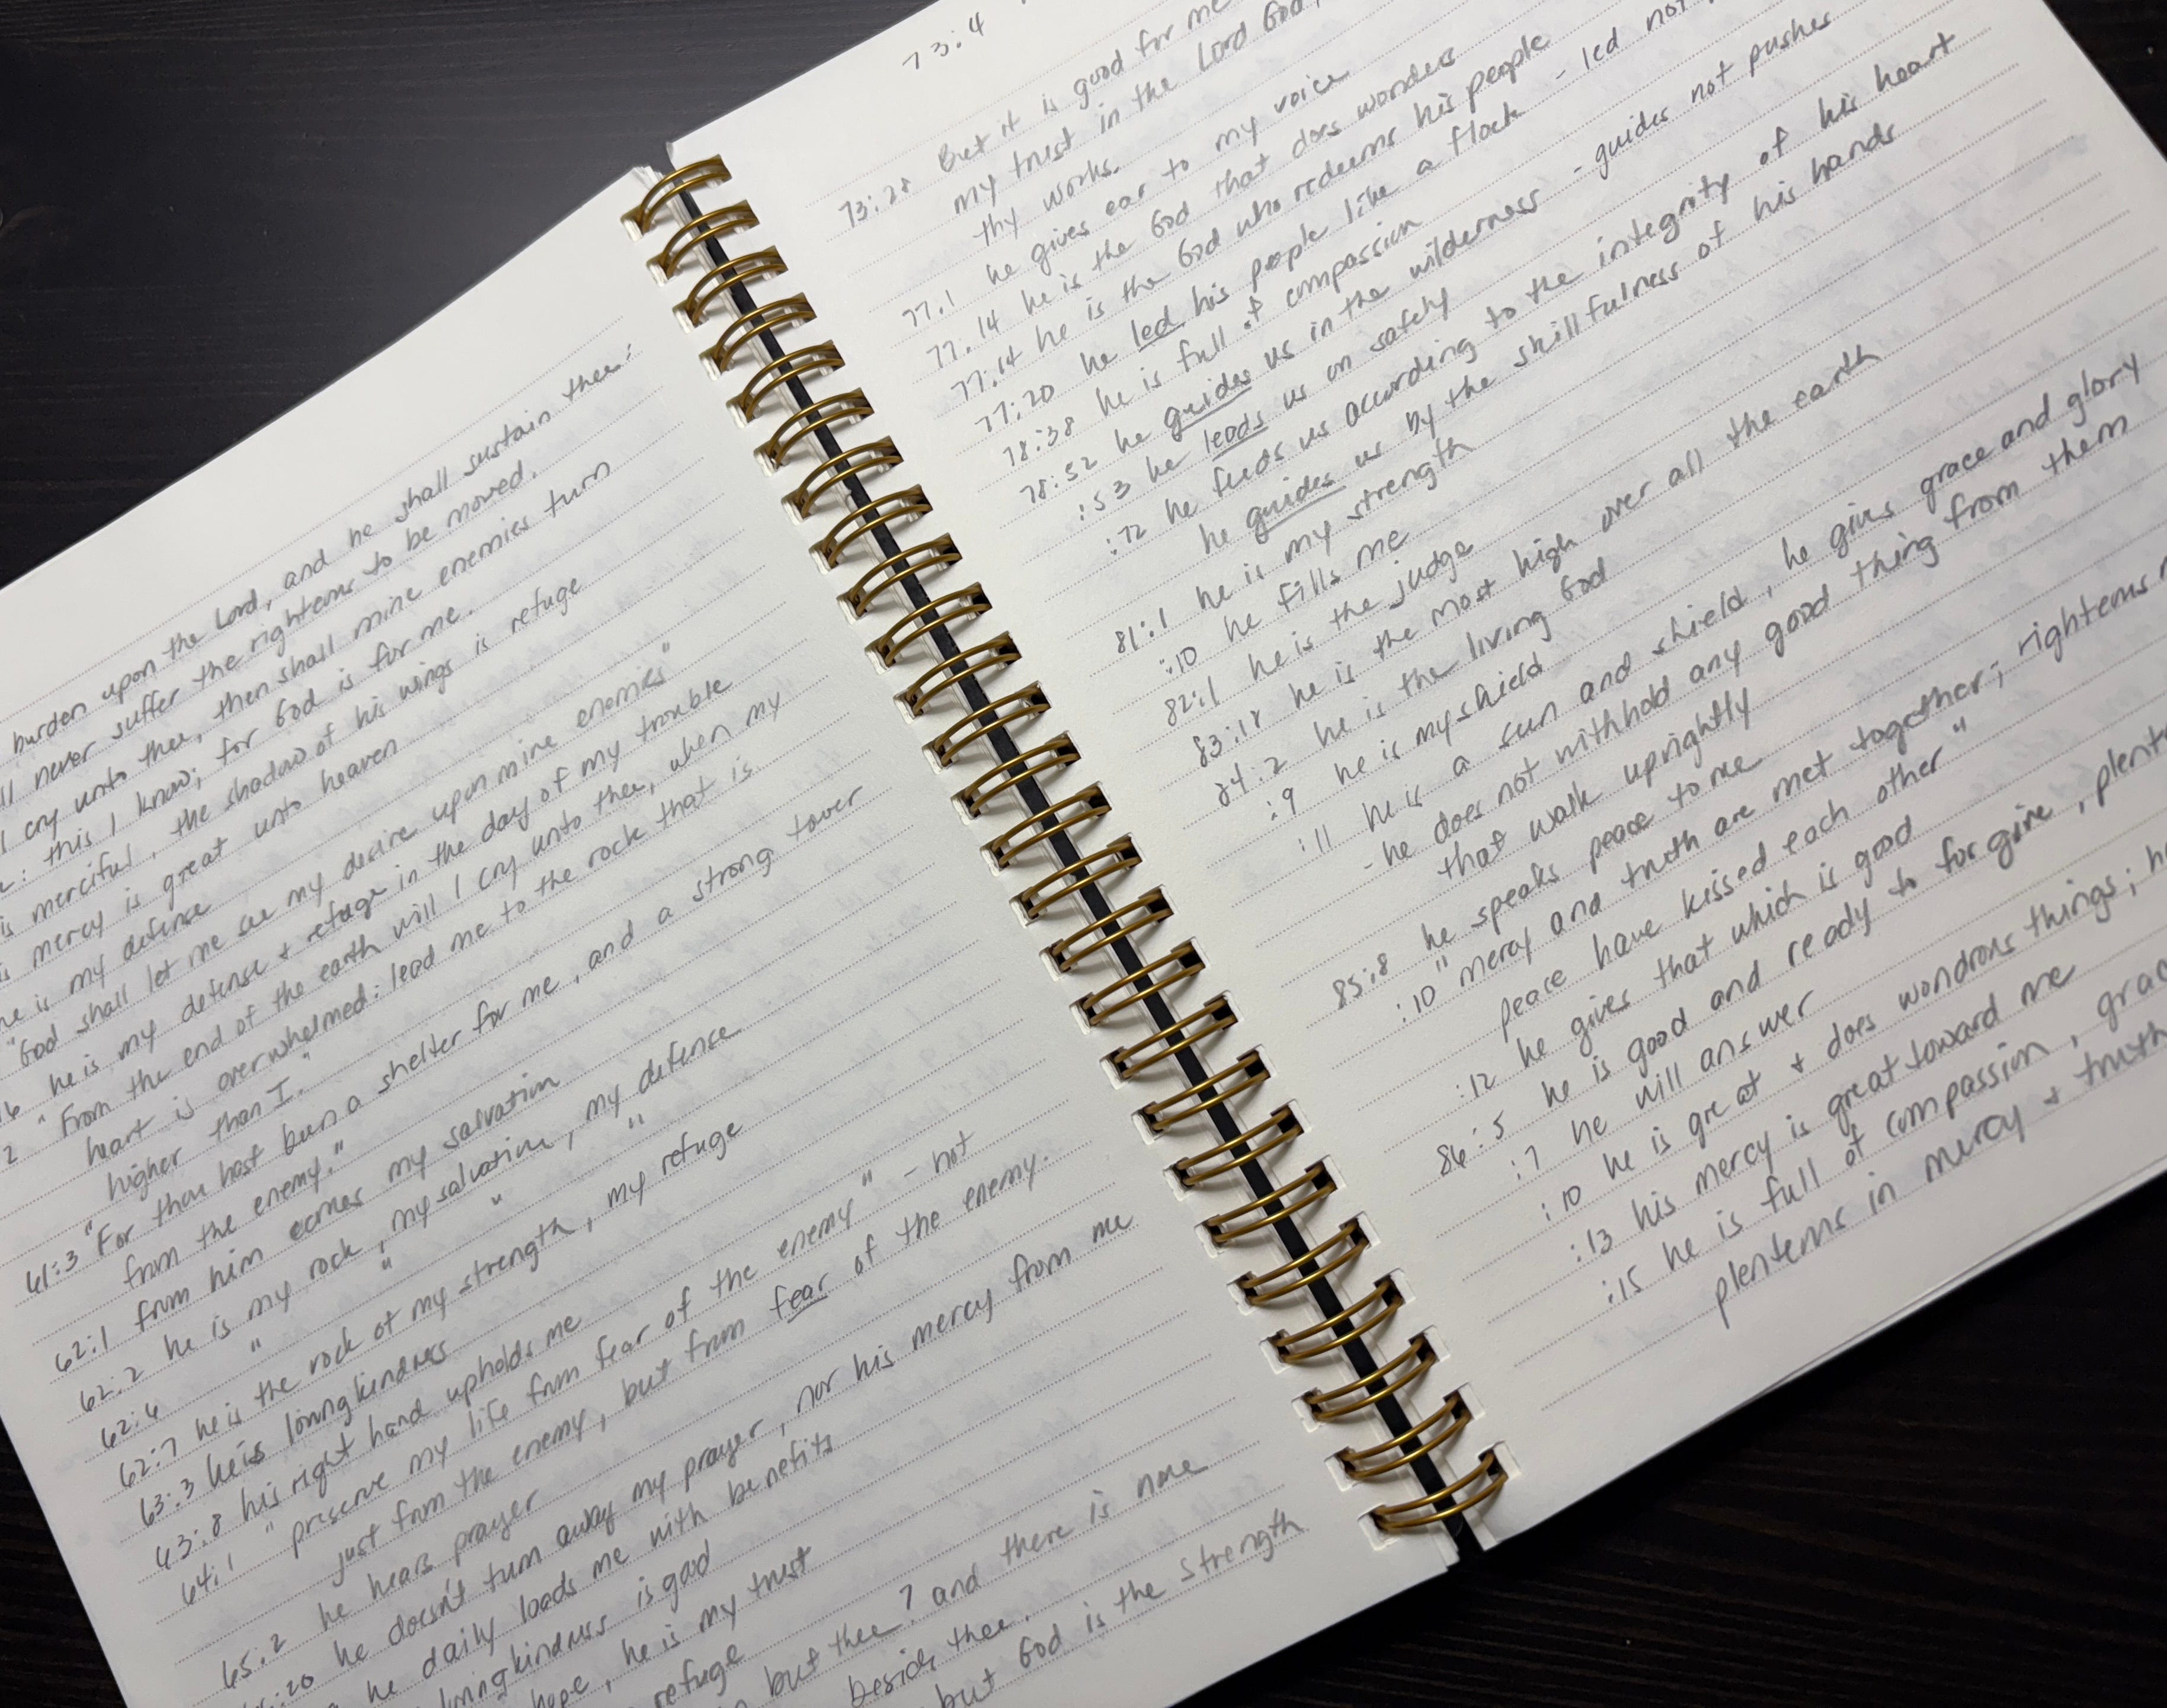 burden upon the Lord, and he shall sustain thee:
never suffer the righteous to be moved.
I cry unto thee, then shall mine enemies turn
: this I know; for God is for me.
is merciful, the shadow of his wings is refuge
mercy is great unto heaven
he is my defense
"God shall let me see my desire upon mine enemies"
he is my defense + refuge in the day of my trouble
2 "From the end of the earth will I cry unto thee, when my
heart is overwhelmed: lead me to the rock that is
higher than I."
61:3 "For thou hast been a shelter for me, and a strong tower
from the enemy."
62:1 from him comes my salvation
62:2 he is my rock, my salvation, my defense
62:6 " " " "
62:7 he is the rock of my strength, my refuge
63:3 he is lovingkindness
63:8 his right hand upholds me
64:1 "preserve my life from fear of the enemy" - not
just from the enemy, but from fear of the enemy.
65:2 he hears prayer
:20 he doesn't turn away my prayer, nor his mercy from me
he daily loads me with benefits
lovingkindness is good
hope, he is my trust
refuge
but thee? and there is none
beside thee.
but God is the strength
73:4
73:28 But it is good for me
my trust in the Lord God,
thy works.
77:1 he gives ear to my voice
77:14 he is the God that does wonders
77:14 he is the God who redeems his people
77:20 he led his people like a flock - led not
78:38 he is full of compassion
78:52 he guides us in the wilderness - guides not pushes
:53 he leads us on safely
:72 he feeds us according to the integrity of his heart
he guides us by the skillfulness of his hands
81:1 he is my strength
:10 he fills me
82:1 he is the judge
83:18 he is the most high over all the earth
84:2 he is the living God
:9 he is my shield
:11 he is a sun and shield, he gives grace and glory
- he does not withhold any good thing from them
that walk uprightly
85:8 he speaks peace to me
:10 "mercy and truth are met together; righteous
peace have kissed each other"
:12 he gives that which is good
86:5 he is good and ready to forgive,
:7 he will answer
:10 he is great + does wondrous things;
:13 his mercy is great toward me
:15 he is full of compassion,
plenteous in mercy + truth